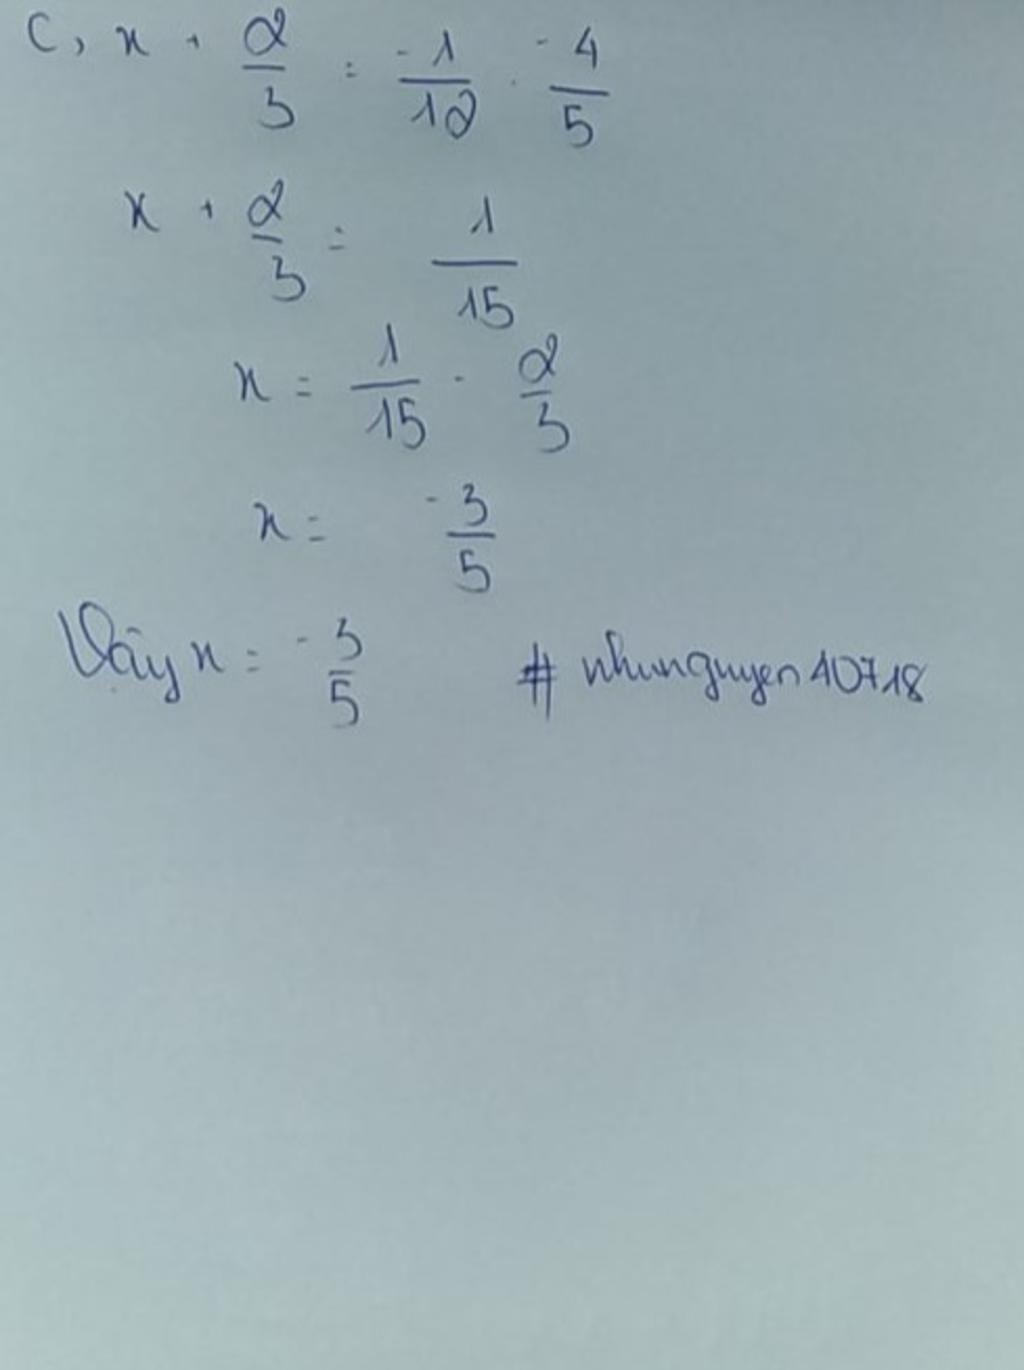 C, x + 2/3 = -1/12 . -4/5
x + 2/3 = 1/15
x = 1/15 - 2/3
x = -3/5
Vậy x = -3/5 # nhunguyen40718